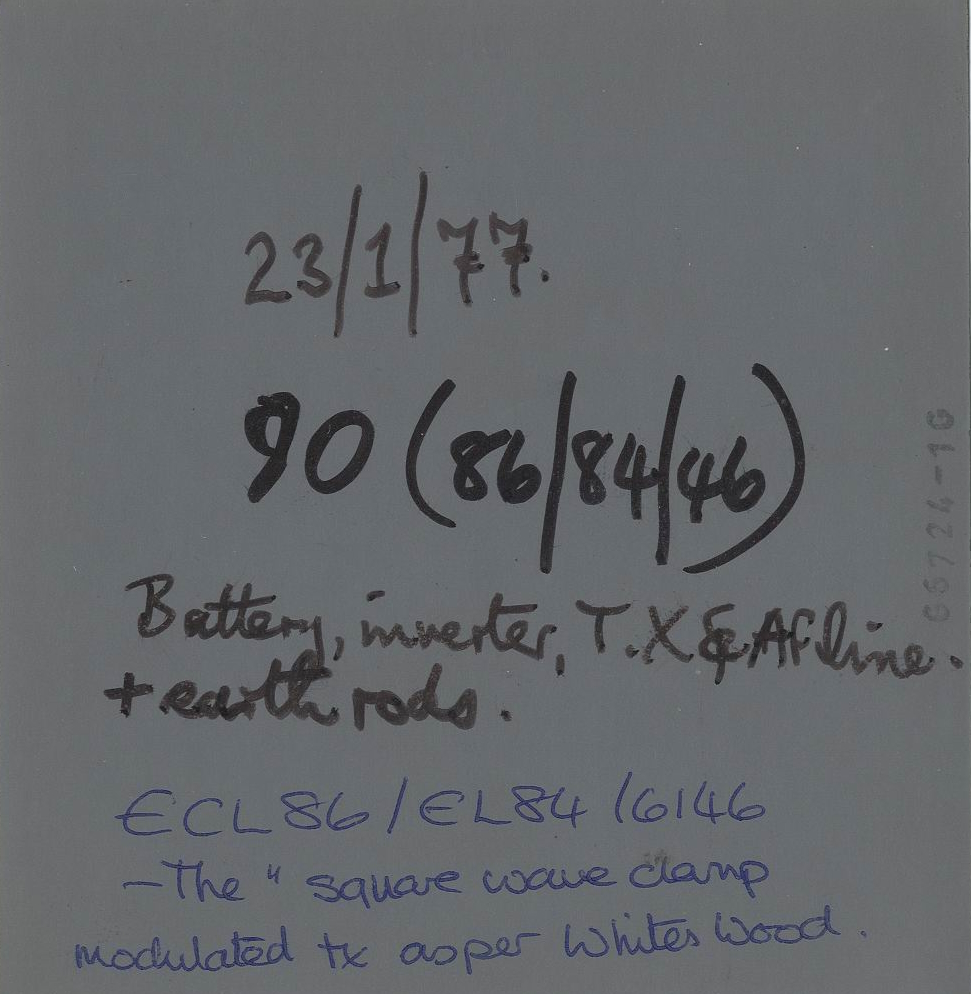 23/1/77.
90 (86/84/46)
Battery, inverter, T.X & Af line.
+ earth rods.
ECL86/EL84/6146
- The " square wave clamp
modulated tx as per Whites Wood.